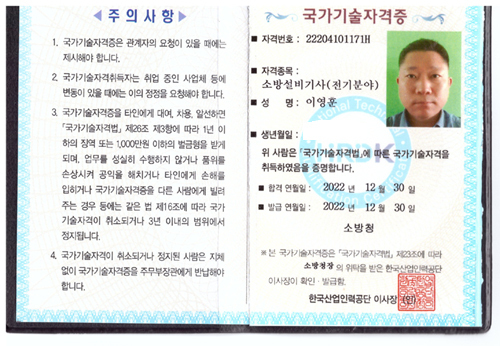 주의사항
1. 국가기술자격증은 관계자의 요청이 있을 때에는
제시해야 합니다.
2. 국가기술자격취득자는 취업 중인 사업체 등에
변동이 있을 때에는 이의 정정을 요청해야 합니다.
3. 국가기술자격증을 타인에게 대여, 차용, 알선하면
「국가기술자격법」 제26조 제3항에 따라 1년 이
하의 징역 또는 1,000만원 이하의 벌금형을 받게
되며, 업무를 성실히 수행하지 않거나 품위를
손상시켜 공익을 해치거나 타인에게 손해를
입히거나 국가기술자격증을 다른 사람에게 빌려
주는 경우 등에는 같은 법 제16조에 따라 국가
기술자격이 취소되거나 3년 이내의 범위에서
정지됩니다.
4. 국가기술자격이 취소되거나 정지된 사람은 지체
없이 국가기술자격증을 주무부장관에게 반납해야
합니다.
국가기술자격증
■ 자격번호 : 22204101171H
■ 자격종목 :
소방설비기사(전기분야)
■ 성 명 : 이영훈
■ 생년월일 :
위 사람은 「국가기술자격법」에 따른 국가기술자격을
취득하였음을 증명합니다.
■ 합격 연월일 : 2022 년 12 월 30 일
■ 발급 연월일 : 2022 년 12 월 30 일
소방청
※ 본 국가기술자격증은 「국가기술자격법」 제23조에 따라
소방청장의 위탁을 받은 한국산업인력공단
이사장이 확인·발급함.
한국산업인력공단 이사장 (인)